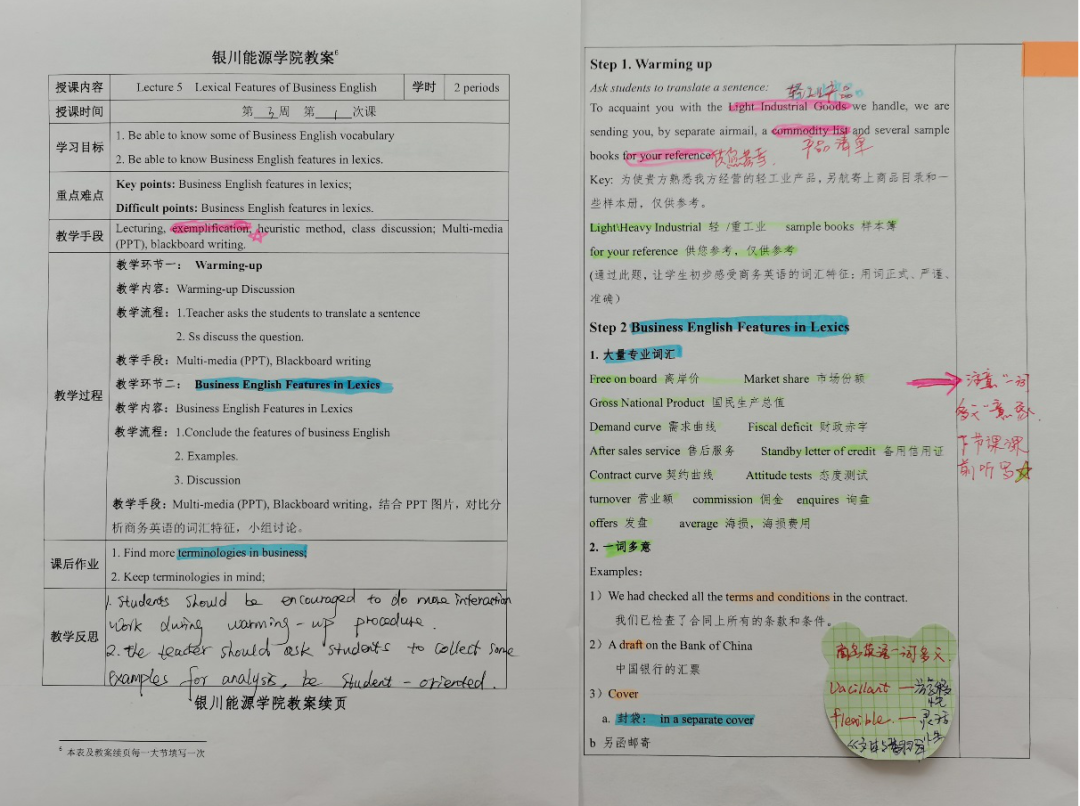 银川能源学院教案6
授课内容 Lecture 5 Lexical Features of Business English 学时 2 periods
授课时间 第 3 周 第 1 次课
学习目标
1. Be able to know some of Business English vocabulary
2. Be able to know Business English features in lexics.
重点难点
Key points: Business English features in lexics;
Difficult points: Business English features in lexics.
教学手段
Lecturing, exemplification, heuristic method, class discussion; Multi-media
(PPT), blackboard writing.
教学过程
教学环节一： Warming-up
教学内容：Warming-up Discussion
教学流程：1.Teacher asks the students to translate a sentence
2. Ss discuss the question.
教学手段：Multi-media (PPT), Blackboard writing
教学环节二： Business English Features in Lexics
教学内容：Business English Features in Lexics
教学流程：1.Conclude the features of business English
2. Examples.
3. Discussion
教学手段：Multi-media (PPT), Blackboard writing，结合 PPT 图片，对比分
析商务英语的词汇特征，小组讨论。
课后作业
1. Find more terminologies in business;
2. Keep terminologies in mind;
教学反思
1. Students should be encouraged to do more interaction
work during warming-up procedure.
2. the teacher should ask students to collect some
examples for analysis, be student-oriented.
银川能源学院教案续页
6 本表及教案续页每一大节填写一次
Step 1. Warming up
Ask students to translate a sentence: 轻工业产品
To acquaint you with the Light Industrial Goods we handle, we are
sending you, by separate airmail, a commodity list and several sample
books for your reference. 供您参考. 产品清单
Key: 为使贵方熟悉我方经营的轻工业产品，另航寄上商品目录和一
些样本册，仅供参考。
Light\Heavy Industrial 轻 /重工业 sample books 样本簿
for your reference 供您参考，仅供参考
(通过此题，让学生初步感受商务英语的词汇特征：用词正式、严谨、
准确）
Step 2 Business English Features in Lexics
1. 大量专业词汇
Free on board 离岸价 Market share 市场份额
Gross National Product 国民生产总值
Demand curve 需求曲线 Fiscal deficit 财政赤字
After sales service 售后服务 Standby letter of credit 备用信用证
Contract curve 契约曲线 Attitude tests 态度测试
turnover 营业额 commission 佣金 enquires 询盘
offers 发盘 average 海损，海损费用
2. 一词多意
Examples:
1）We had checked all the terms and conditions in the contract.
我们已检查了合同上所有的条款和条件。
2）A draft on the Bank of China
中国银行的汇票
3）Cover
a. 封袋： in a separate cover
b 另函邮寄
注意"一词
多义"意
下节课课
前听写
商务英语一词多义.
Vacillant —
flexible. — 灵活